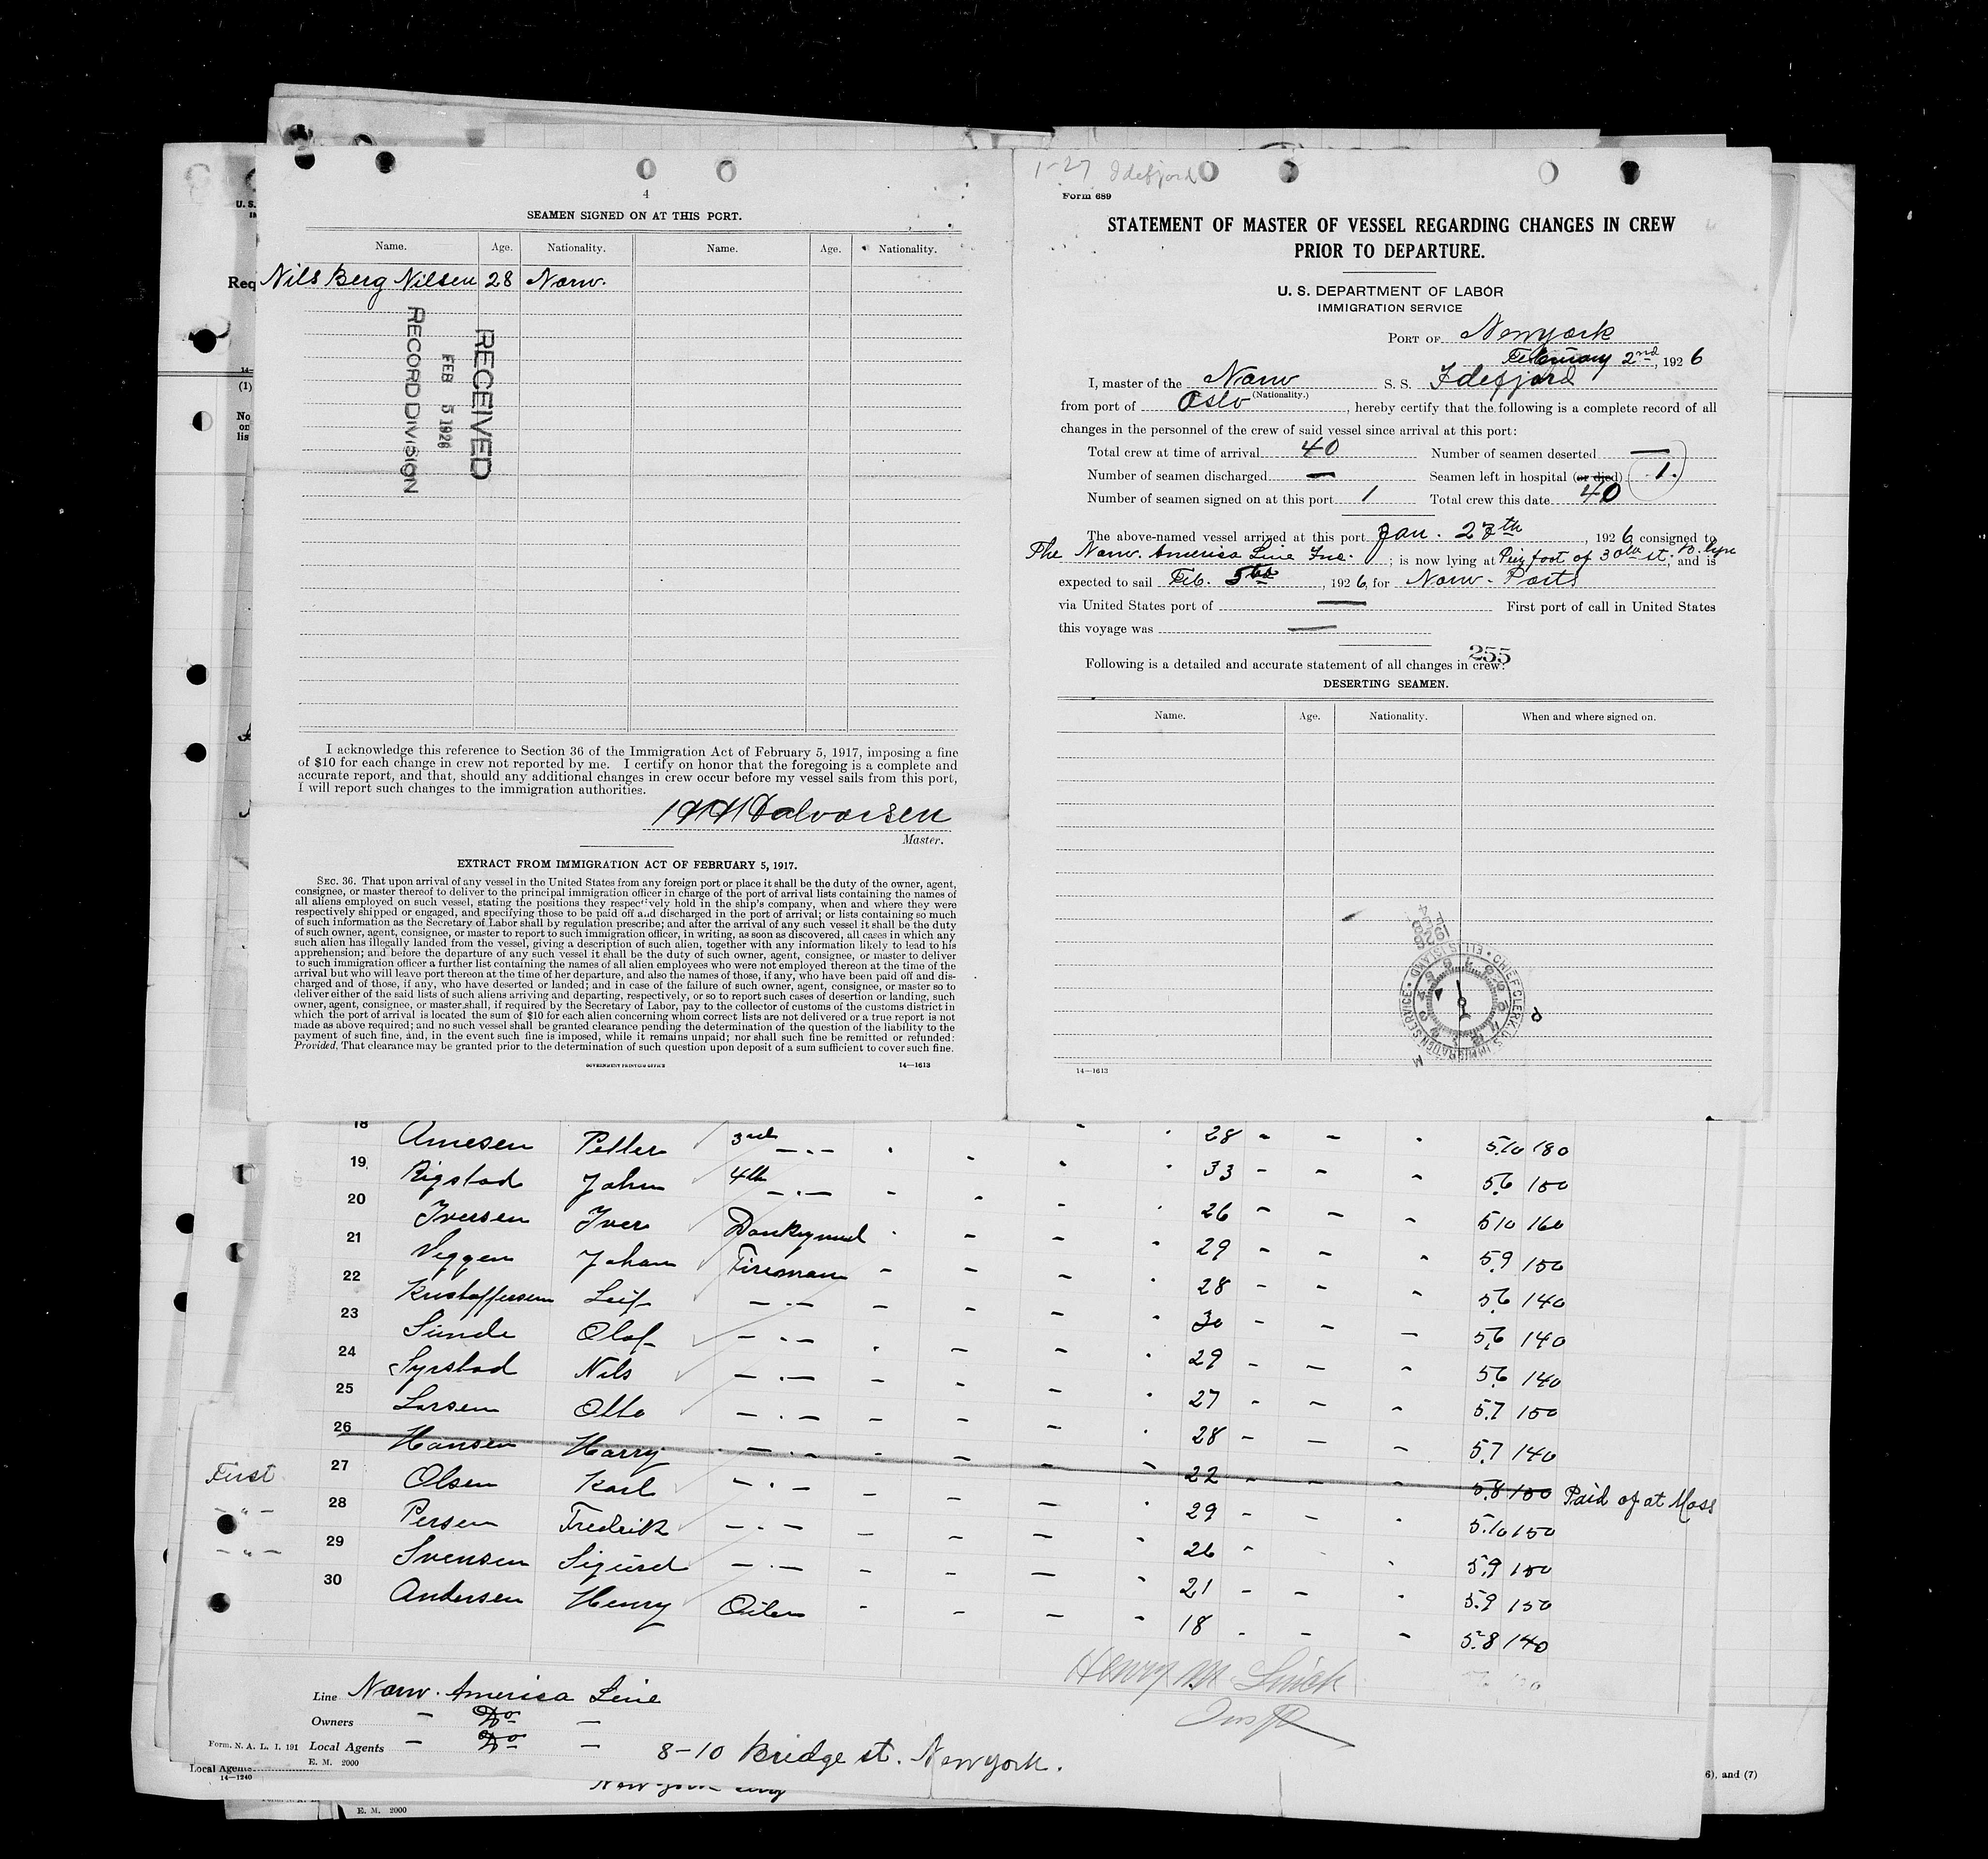 4
SEAMEN SIGNED ON AT THIS PORT.
Name. Age. Nationality. Name. Age. Nationality.
Nils Berg Nilsen 28 Norw.
RECEIVED
FEB 5 1926
RECORD DIVISION
I acknowledge this reference to Section 36 of the Immigration Act of February 5, 1917, imposing a fine
of $10 for each change in crew not reported by me. I certify on honor that the foregoing is a complete and
accurate report, and that, should any additional changes in crew occur before my vessel sails from this port,
I will report such changes to the immigration authorities.
Halvorsen
Master.
EXTRACT FROM IMMIGRATION ACT OF FEBRUARY 5, 1917.
SEC. 36. That upon arrival of any vessel in the United States from any foreign port or place it shall be the duty of the owner, agent,
consignee, or master thereof to deliver to the principal immigration officer in charge of the port of arrival lists containing the names of
all aliens employed on such vessel, stating the positions they respectively hold in the ship's company, when and where they were
respectively shipped or engaged, and specifying those to be paid off and discharged in the port of arrival; or lists containing so much
of such information as the Secretary of Labor shall by regulation prescribe; and after the arrival of any such vessel it shall be the duty
of such owner, agent, consignee, or master to report to such immigration officer, in writing, as soon as discovered, all cases in which any
such alien has illegally landed from the vessel, giving a description of such alien, together with any information likely to lead to his
apprehension; and before the departure of any such vessel it shall be the duty of such owner, agent, consignee, or master to deliver
to such immigration officer a further list containing the names of all alien employees who were not employed thereon at the time of the
arrival but who will leave port thereon at the time of her departure, and also the names of those, if any, who have been paid off and dis-
charged and of those, if any, who have deserted or landed; and in case of the failure of such owner, agent, consignee, or master so to
deliver either of the said lists of such aliens arriving and departing, respectively, or so to report such cases of desertion or landing, such
owner, agent, consignee, or master shall, if required by the Secretary of Labor, pay to the collector of customs of the customs district in
which the port of arrival is located the sum of $10 for each alien concerning whom correct lists are not delivered or a true report is not
made as above required; and no such vessel shall be granted clearance pending the determination of the question of the liability to the
payment of such fine, and, in the event such fine is imposed, while it remains unpaid; nor shall such fine be remitted or refunded:
Provided, That clearance may be granted prior to the determination of such question upon deposit of a sum sufficient to cover such fine.
GOVERNMENT PRINTING OFFICE 14—1613
1-27 Idefjord
Form 689
STATEMENT OF MASTER OF VESSEL REGARDING CHANGES IN CREW
PRIOR TO DEPARTURE.
U. S. DEPARTMENT OF LABOR
IMMIGRATION SERVICE
PORT OF Newyork
February 2nd, 1926
I, master of the Norw S. S. Idefjord
(Nationality.)
from port of Oslo, hereby certify that the following is a complete record of all
changes in the personnel of the crew of said vessel since arrival at this port:
Total crew at time of arrival 40 Number of seamen deserted —
Number of seamen discharged — Seamen left in hospital (or died) 1.
Number of seamen signed on at this port 1 Total crew this date 40
The above-named vessel arrived at this port Jan. 27th, 1926 consigned to
The Norw. America Line Inc.; is now lying at Pier foot of 30th st. B.lyn, and is
expected to sail Feb. 5th, 1926, for Norw. Ports
via United States port of — First port of call in United States
this voyage was —
255
Following is a detailed and accurate statement of all changes in crew:
DESERTING SEAMEN.
Name. Age. Nationality. When and where signed on.
1926 FEB 4
CHIEF CLERK, U.S. IMMIGRATION SERVICE • ELLIS ISLAND •
14—1613
18 Arnesen Petter 3rd —.— 28 5.10 180
19 Rigstad John 4th —.— 33 5.6 150
20 Iversen Iver Donkeyman 26 5.10 160
21 Veggen Johan Fireman 29 5.9 150
22 Kristoffersen Leif —.— 28 5.6 140
23 Sunde Olaf —.— 30 5.6 140
24 Syrstad Nils —.— 29 5.6 140
25 Larsen Otto —.— 27 5.7 150
26 Hansen Harry —.— 28 5.7 140
First 27 Olsen Karl —.— 22 5.8 150 Paid of at Moss
—"— 28 Persen Fredrik —.— 29 5.10 150
—"— 29 Svensen Sigurd —.— 26 5.9 150
30 Andersen Henry Oiler 21 5.9 150
18 5.8 140
Line Norw. America Line
Owners — Do —
Form. N. A. L. I. 191 Local Agents — Do — 8-10 Bridge st. Newyork.
E. M. 2000
Local Agents
14—1240
6), and (7)
E. M. 2000